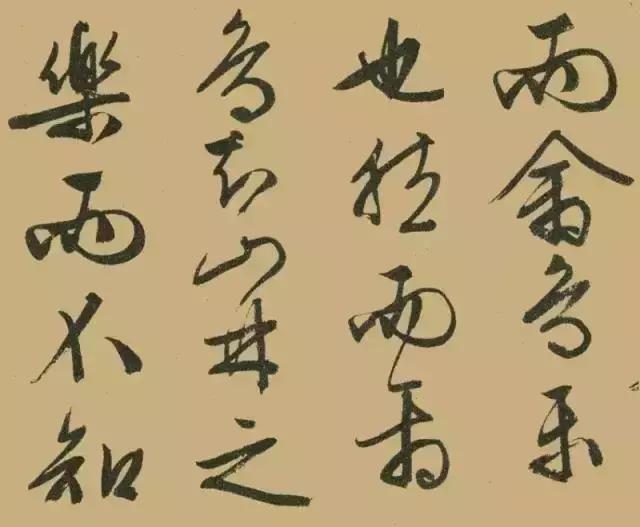 而禽鳥樂
也然而禽
鳥知山林之
樂而不知